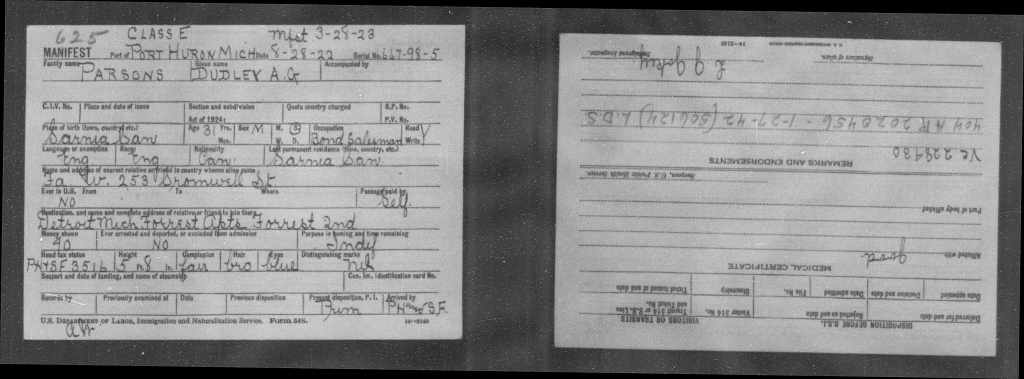 625 CLASS E Mfst 3-28-23
MANIFEST Port of PORT HURON MICH Date 8-28-22 Serial No. 667-98-5
Family name Given name Accompanied by
PARSONS DUDLEY A.G
C.I.V. No. Place and date of issue Section and subdivision Quota country charged R.P. No.
Act of 1924: P.V. No.
Place of birth (town, country, etc.) Age 31 Yrs. Sex M M. S W. D. Occupation Read
Sarnia Can Mos. Bond Salesman Write Y
Language or exemption Race Nationality Last permanent residence (town, country, etc.)
Eng Eng Can Sarnia Can
Name and address of nearest relative or friend in country whence alien came
Fa W. 253 Bromwell St.
Ever in U.S. From To Where Passage paid by
NO Self
Destination, and name and complete address of relative or friend to join there
Detroit Mich Forrest Apts Forrest 2nd
Money shown Ever arrested and deported, or excluded from admission Purpose in coming and time remaining
40 NO Indy
Head tax status Height Complexion Hair Eyes Distinguishing marks
PHTSF 3516 5 n8 in fair bro blue Nil
Seaport and date of landing, and name of steamship Can. Im. Identification card No.
Records by Previously examined at Date Previous disposition Present disposition, P. I. Arrived by
Prim PH S.F.
U.S. DEPARTMENT OF LABOR, Immigration and Naturalization Service. FORM 548.
DISPOSITION BEFORE B.S.I. VISITORS OR TRANSITS
Deferred for and date Reported as and date Visitor 514 No. Transit 514 or S.S. Line and Ticket No.
Date appealed Decision and date Date admitted File No. Discovery Period of transit
MEDICAL CERTIFICATE
Afflicted with good
Part of body affected
Surgeon, U.S. Public Health Service.
REMARKS AND ENDORSEMENTS
Ve 228930
404 AR 2020456 - 1-27-42 (506124) L.D.S
Immigrant Inspector. Signature of alien.